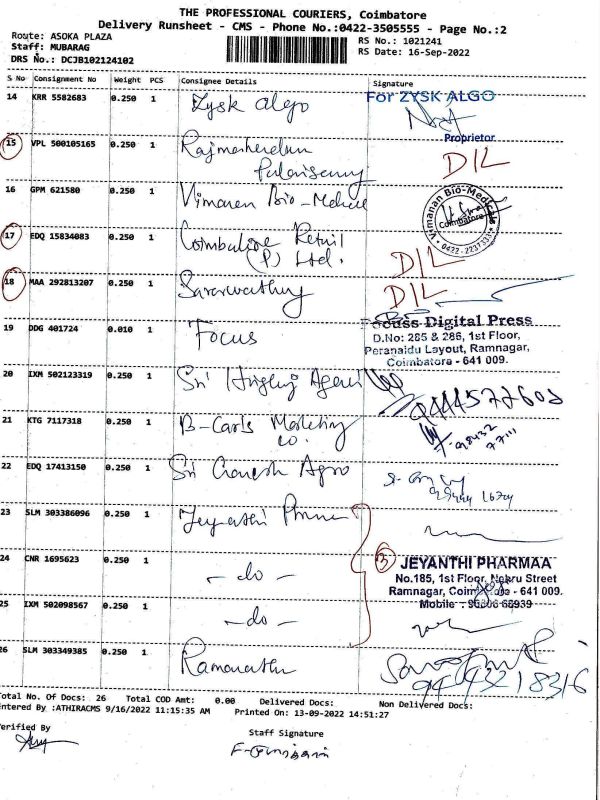 THE PROFESSIONAL COURIERS, Coimbatore
Delivery Runsheet - CMS - Phone No.:0422-3505555 - Page No.:2
Route: ASOKA PLAZA
RS No.: 1021241
Staff: MUBARAG
RS Date: 16-Sep-2022
DRS No.: DCJB102124102
S No Consignment No Weight PCS Consignee Details Signature
14 KRR 5582683 0.250 1 Zysk algo For ZYSK ALGO
Proprietor
15 VPL 500105165 0.250 1 D/L
16 GPM 621580 0.250 1 Vimanan Bio-Medical Vimanan Bio-Medicals Coimbatore
17 EDQ 15834083 0.250 1 Coimbatore Retail
(P) Ltd. D/L
18 MAA 292813207 0.250 1 D/L
19 DDG 401724 0.010 1 Focus Focuss Digital Press
D.No: 285 & 286, 1st Floor,
Peranaidu Layout, Ramnagar,
Coimbatore - 641 009.
20 IXM 502123319 0.250 1 Sri
21 KTG 7117318 0.250 1 B-Carls Marketing
co.
22 EDQ 17413150 0.250 1 Sri Ganesh Agro
23 SLM 303386096 0.250 1 Jeyanthi
3 JEYANTHI PHARMAA
No.185, 1st Floor, Nehru Street
Ramnagar, Coimbatore - 641 009.
24 CNR 1695623 0.250 1 - do -
25 IXM 502098567 0.250 1 - do -
26 SLM 303349385 0.250 1 9443218316
Total No. Of Docs: 26 Total COD Amt: 0.00 Delivered Docs: Non Delivered Docs:
Entered By :ATHIRACMS 9/16/2022 11:15:35 AM Printed On: 13-09-2022 14:51:27
Verified By
Staff Signature